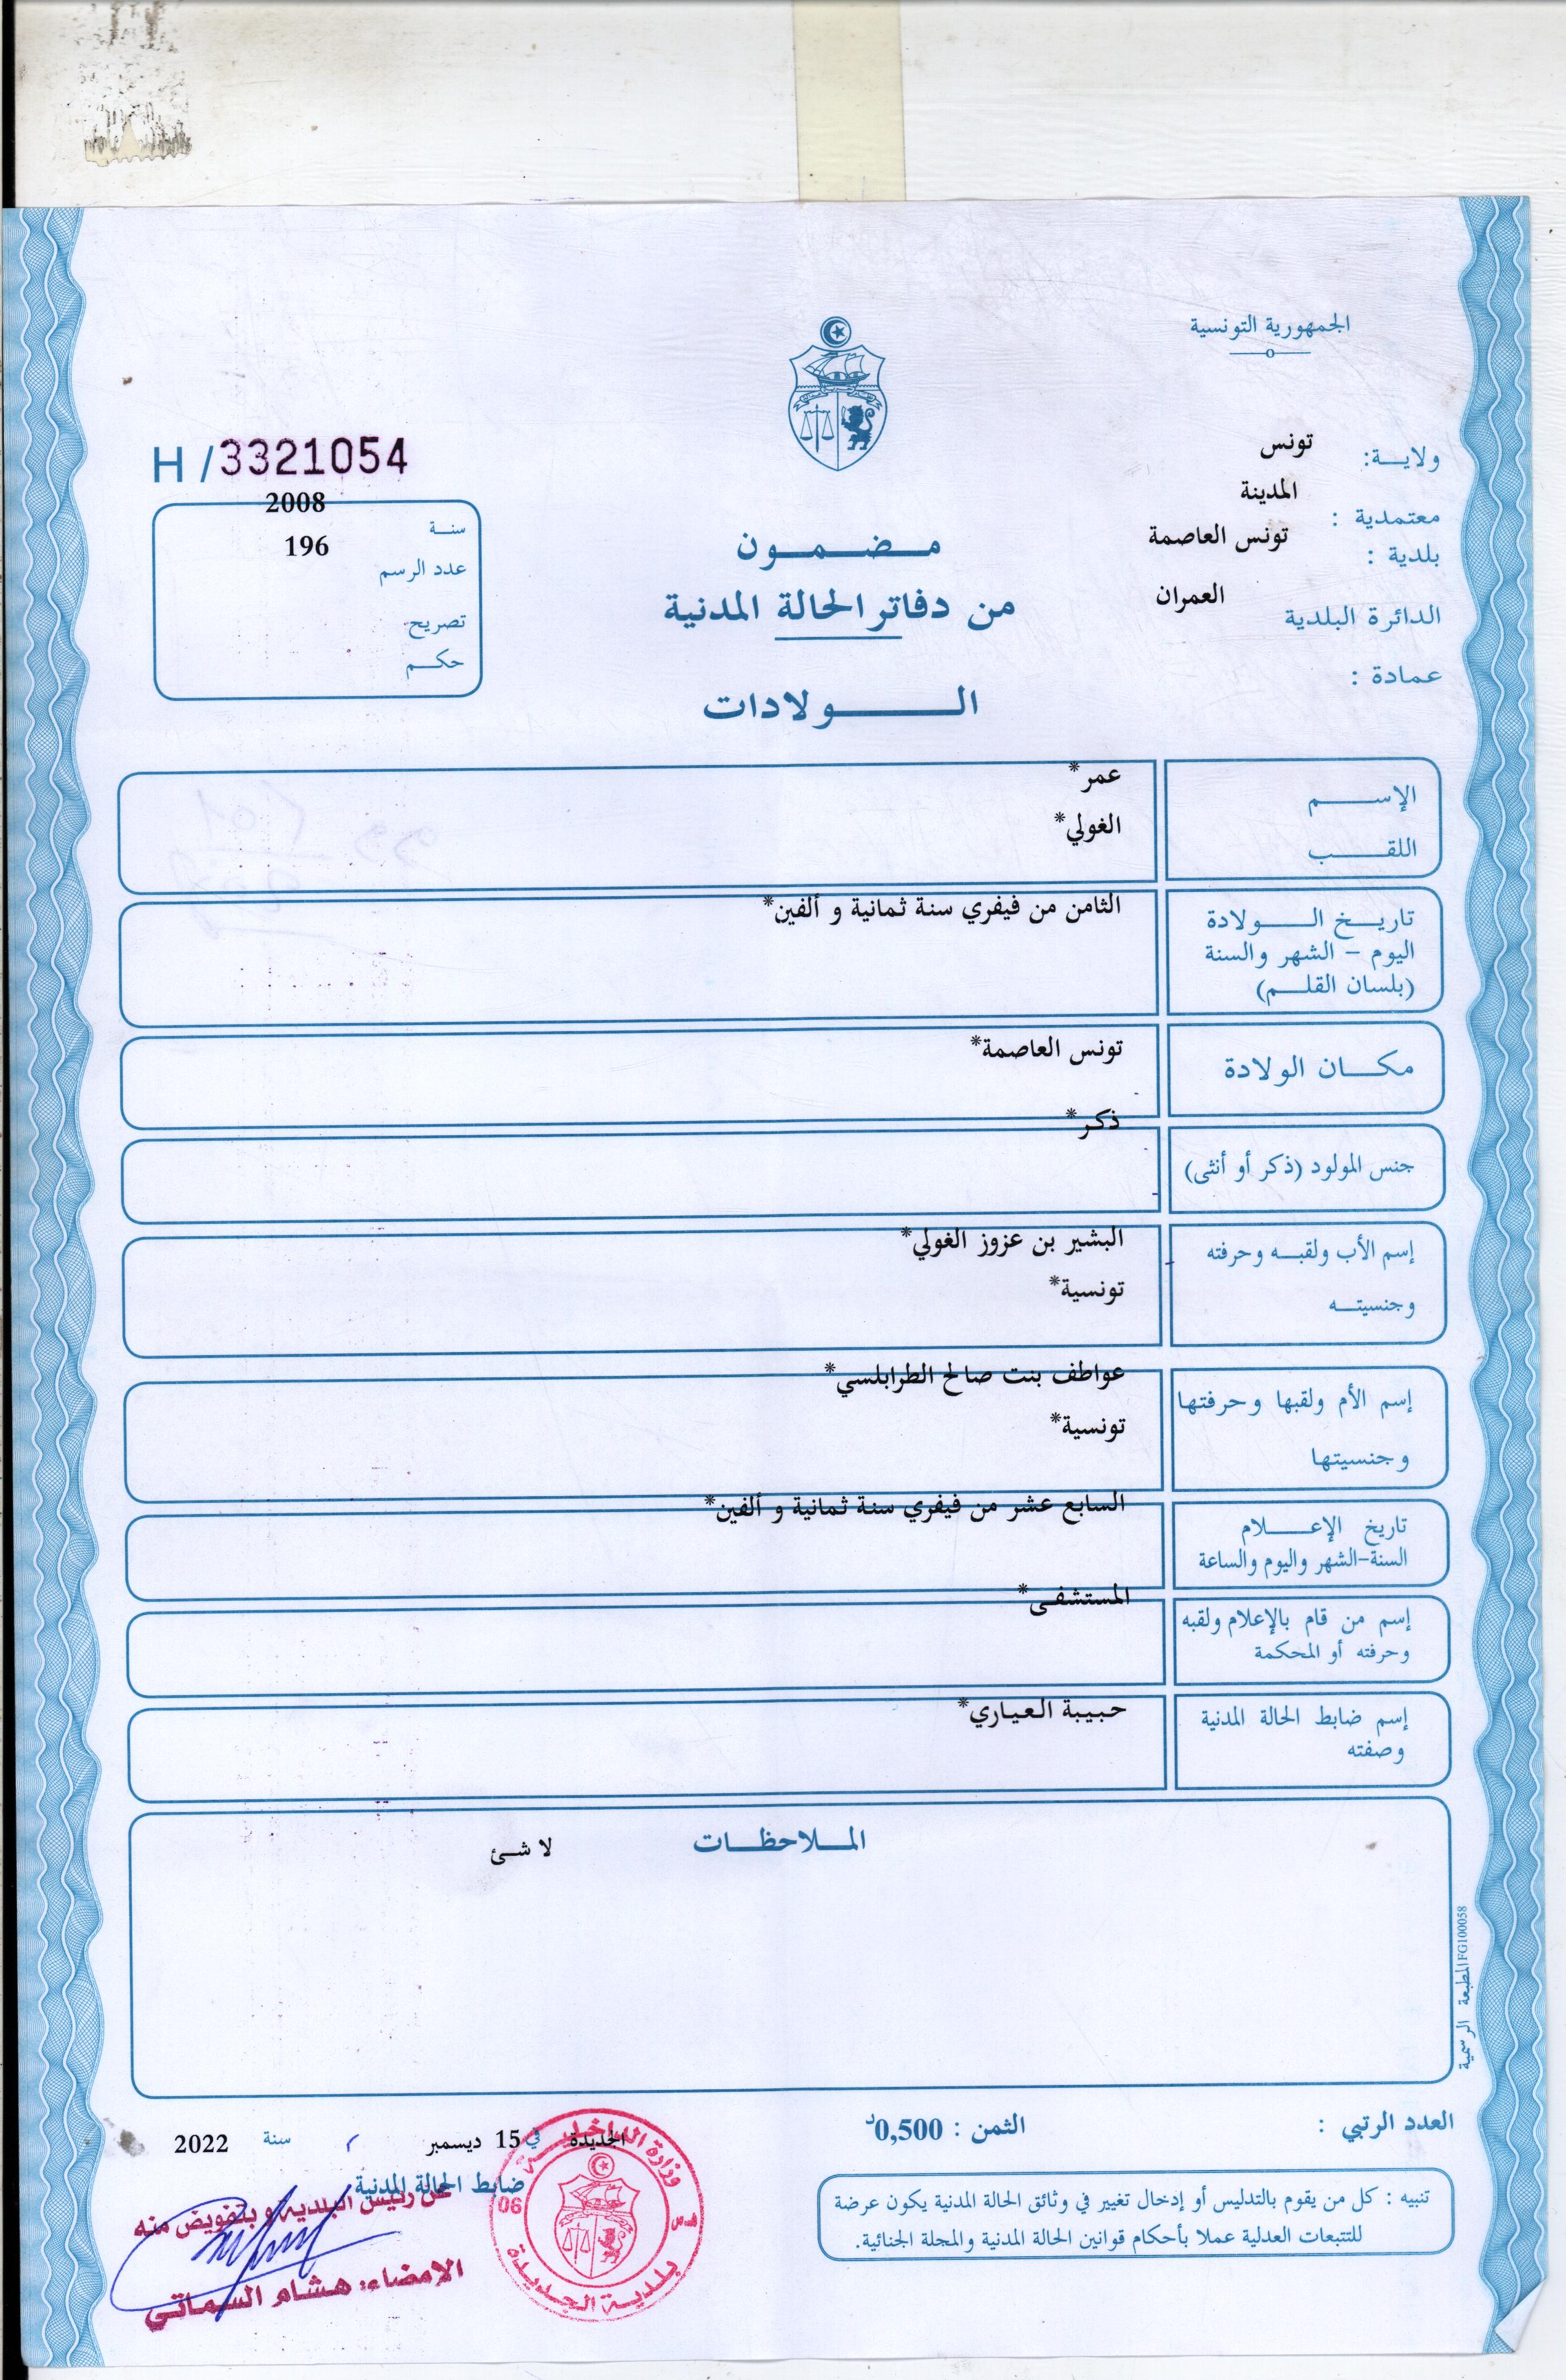 الجمهورية التونسية
ولاية: تونس
معتمدية : المدينة
بلدية : تونس العاصمة
الدائرة البلدية العمران
عمادة :
H / 3321054
سنة 2008
عدد الرسم 196
تصريح
حكم
مضمون
من دفاتر الحالة المدنية
الولادات
الإسم عمر*
اللقب الغولي*
تاريخ الولادة
اليوم - الشهر والسنة
(بلسان القلم)
الثامن من فيفري سنة ثمانية و ألفين*
مكان الولادة تونس العاصمة*
جنس المولود (ذكر أو أنثى) ذكر*
إسم الأب ولقبه وحرفته البشير بن عزوز الغولي*
وجنسيته تونسية*
إسم الأم ولقبها وحرفتها عواطف بنت صالح الطرابلسي*
وجنسيتها تونسية*
تاريخ الإعلام
السنة-الشهر واليوم والساعة
السابع عشر من فيفري سنة ثمانية و ألفين*
إسم من قام بالإعلام ولقبه
وحرفته أو المحكمة
المستشفى*
إسم ضابط الحالة المدنية
وصفته
حبيبة العياري*
الملاحظات
لا شئ
المطبعة الرسمية FG100058
العدد الرتبي :
الثمن : 0,500د
الجديدة في 15 ديسمبر سنة 2022
ضابط الحالة المدنية
عن رئيس البلدية و بتفويض منه
الامضاء: هشام السماتي
وزارة الداخلية
06
بلدية الجديدة
تنبيه : كل من يقوم بالتدليس أو إدخال تغيير في وثائق الحالة المدنية يكون عرضة
للتتبعات العدلية عملا بأحكام قوانين الحالة المدنية والمجلة الجنائية.